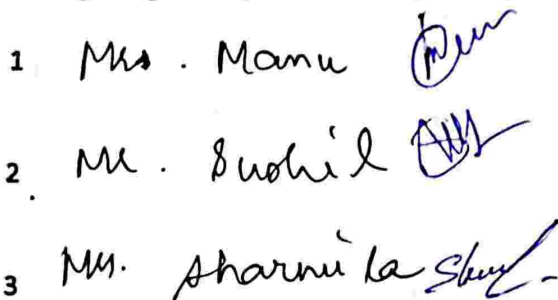 1 Mrs. Manu
2. Mr. Sushil
3 Ms. Sharmila